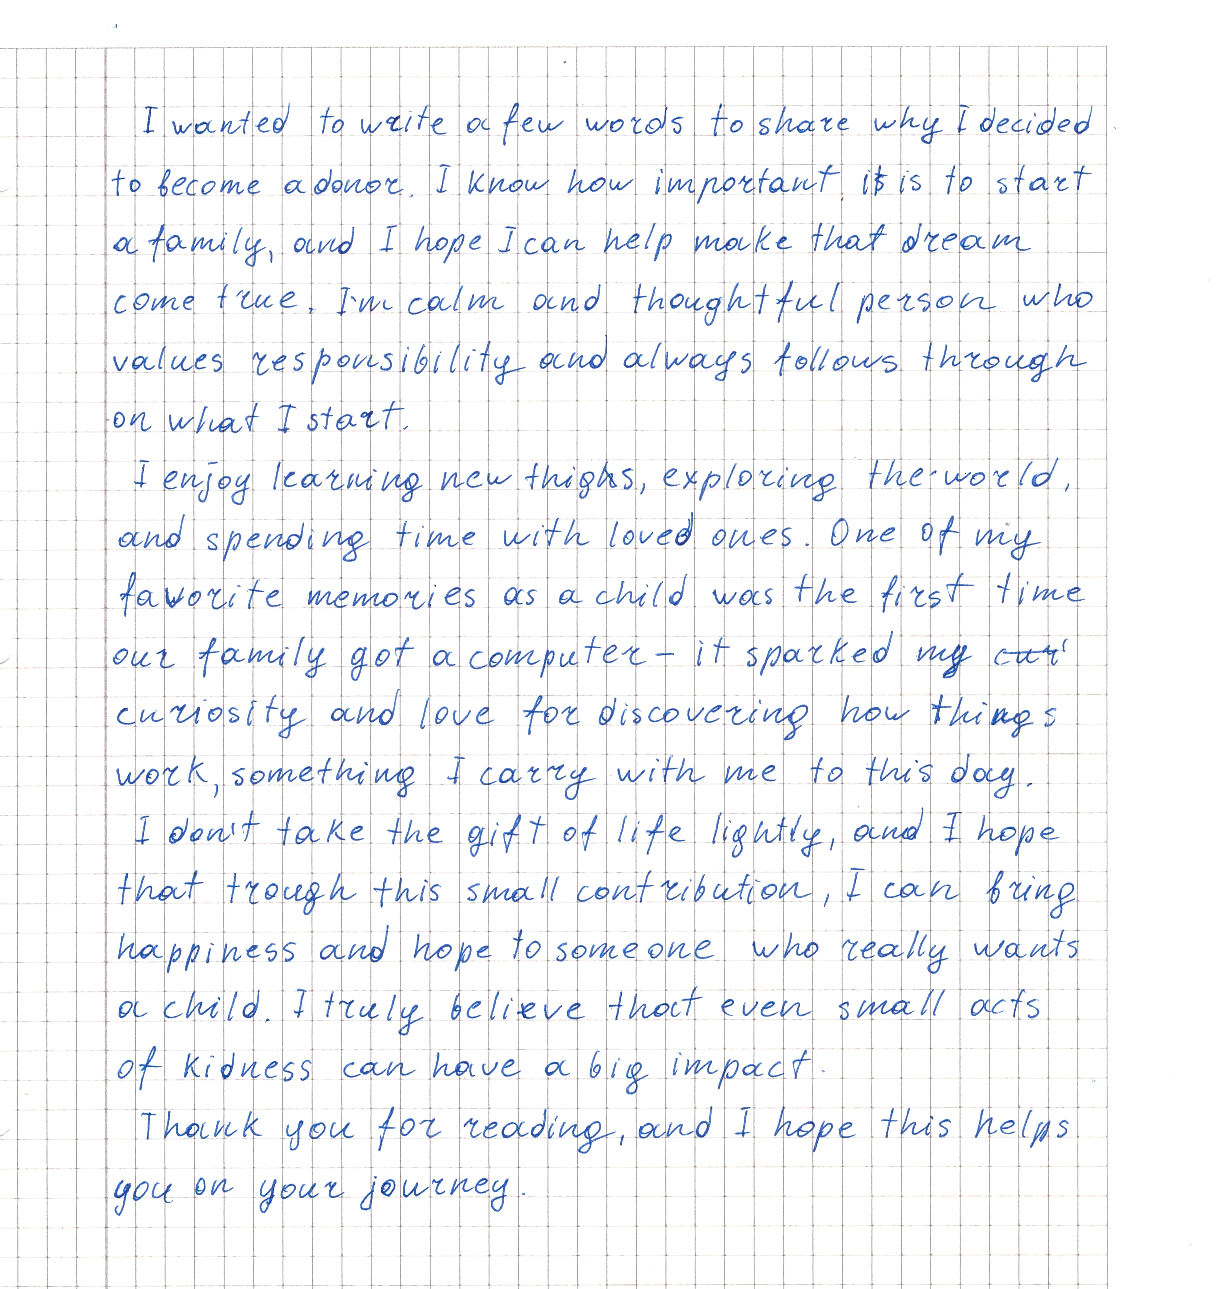 I wanted to write a few words to share why I decided
to become a donor. I know how important it is to start
a family, and I hope I can help make that dream
come true. I'm calm and thoughtful person who
values responsibility and always follows through
on what I start.
I enjoy learning new thighs, exploring the world,
and spending time with loved ones. One of my
favorite memories as a child was the first time
our family got a computer – it sparked my cur
curiosity and love for discovering how things
work, something I carry with me to this day.
I don't take the gift of life lightly, and I hope
that trough this small contribution, I can bring
happiness and hope to someone who really wants
a child. I truly believe that even small acts
of kidness can have a big impact.
Thank you for reading, and I hope this helps
you on your journey.